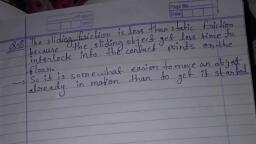 Page No.
Date
The sliding friction is less than static friction
because the sliding object get less time to
interlock into the contact points on the
floor.
→ So it is somewhat easier to move an object
already in motion than to get it started